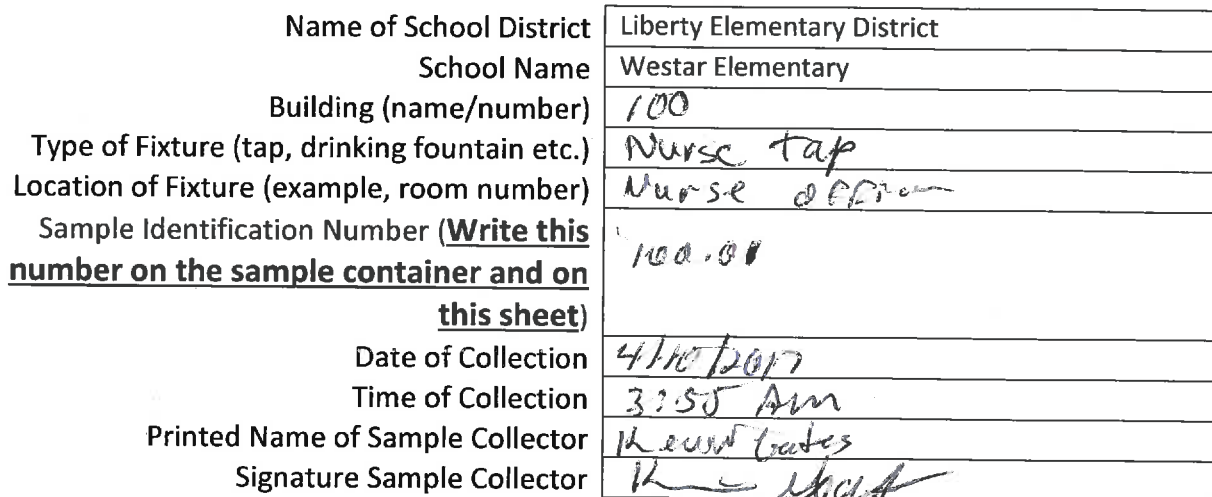 Name of School District Liberty Elementary District
School Name Westar Elementary
Building (name/number) 100
Type of Fixture (tap, drinking fountain etc.) Nurse tap
Location of Fixture (example, room number) Nurse office
Sample Identification Number (Write this
number on the sample container and on 100.01
this sheet)
Date of Collection 4/10/2017
Time of Collection 3:55 Am
Printed Name of Sample Collector Gates
Signature Sample Collector